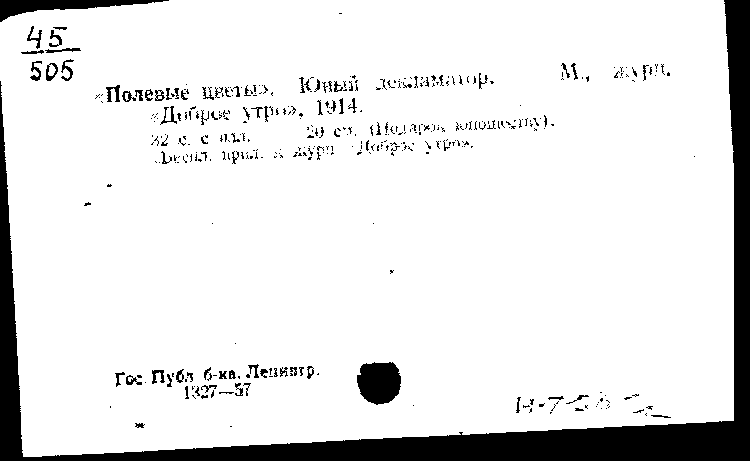 45
505
«Полевые цветы». Юный декламатор. М., журн.
«Доброе утро», 1914.
32 с. с илл. 20 см. (Подарок юношеству).
Беспл. прил. к журн. «Доброе утро».
Гос. Публ. б-ка. Ленингр.
1327—57